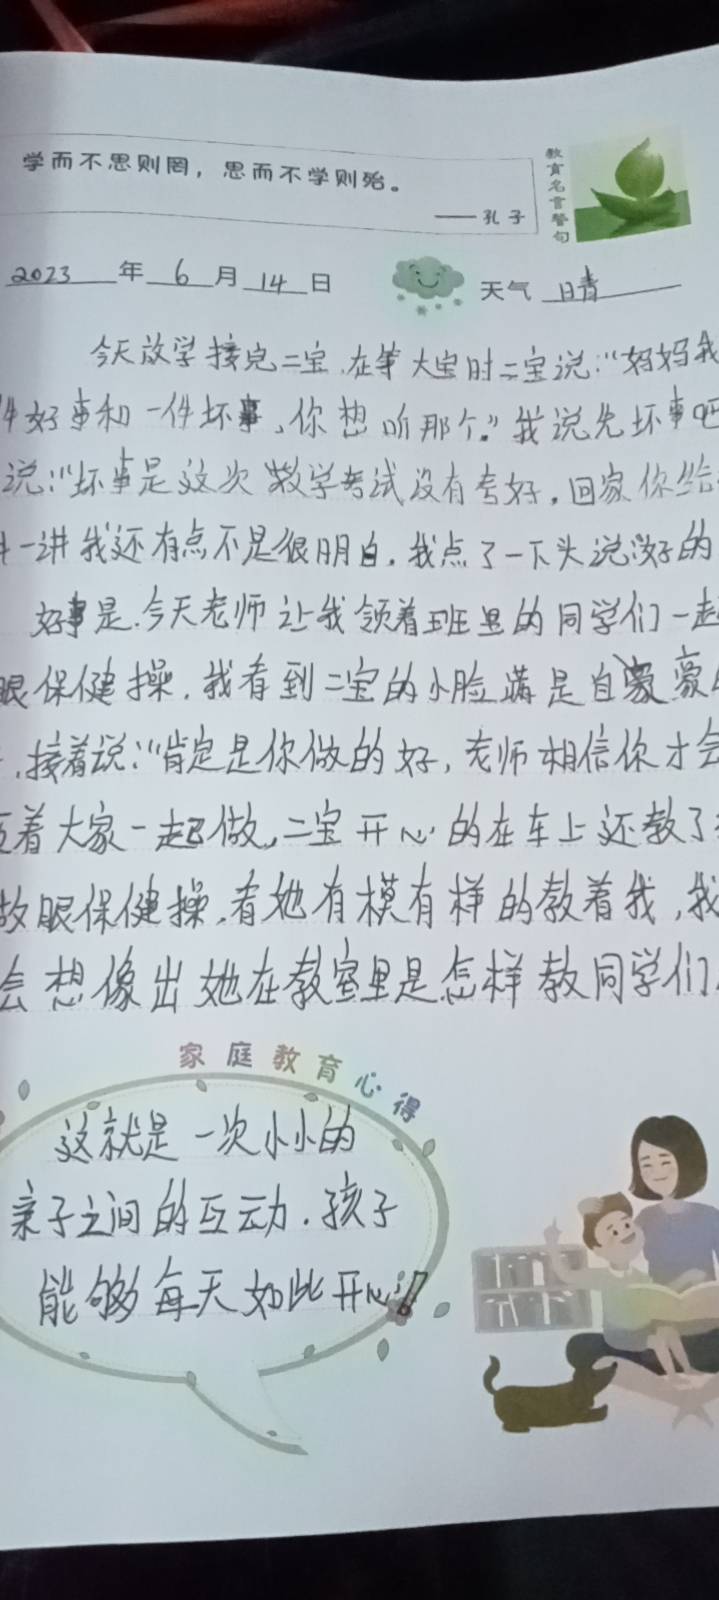 学而不思则罔，思而不学则殆。
——孔子
教育名言警句
2023年6月14日
天气 晴
今天放学接完二宝.在等大宝时二宝说:“妈妈我
件好事和一件坏事、你想听那个.”我说先坏事吧
说:“坏事是这次数学考试没有考好.回家你给
一讲我还有点不是很明白.我点了一下头说好的
好事是.今天老师让我领着班里的同学们一起
眼保健操.我看到二宝的小脸满是自豪
.接着说:“肯定是你做的好,老师相信你才会
着大家一起做.,二宝开心的在车上还教了
做眼保健操.看她有模有样的教着我,我
会想像出她在教室里是怎样教同学们
家庭教育心得
这就是一次小小的
亲子之间的互动.孩子
能够每天如此开心!